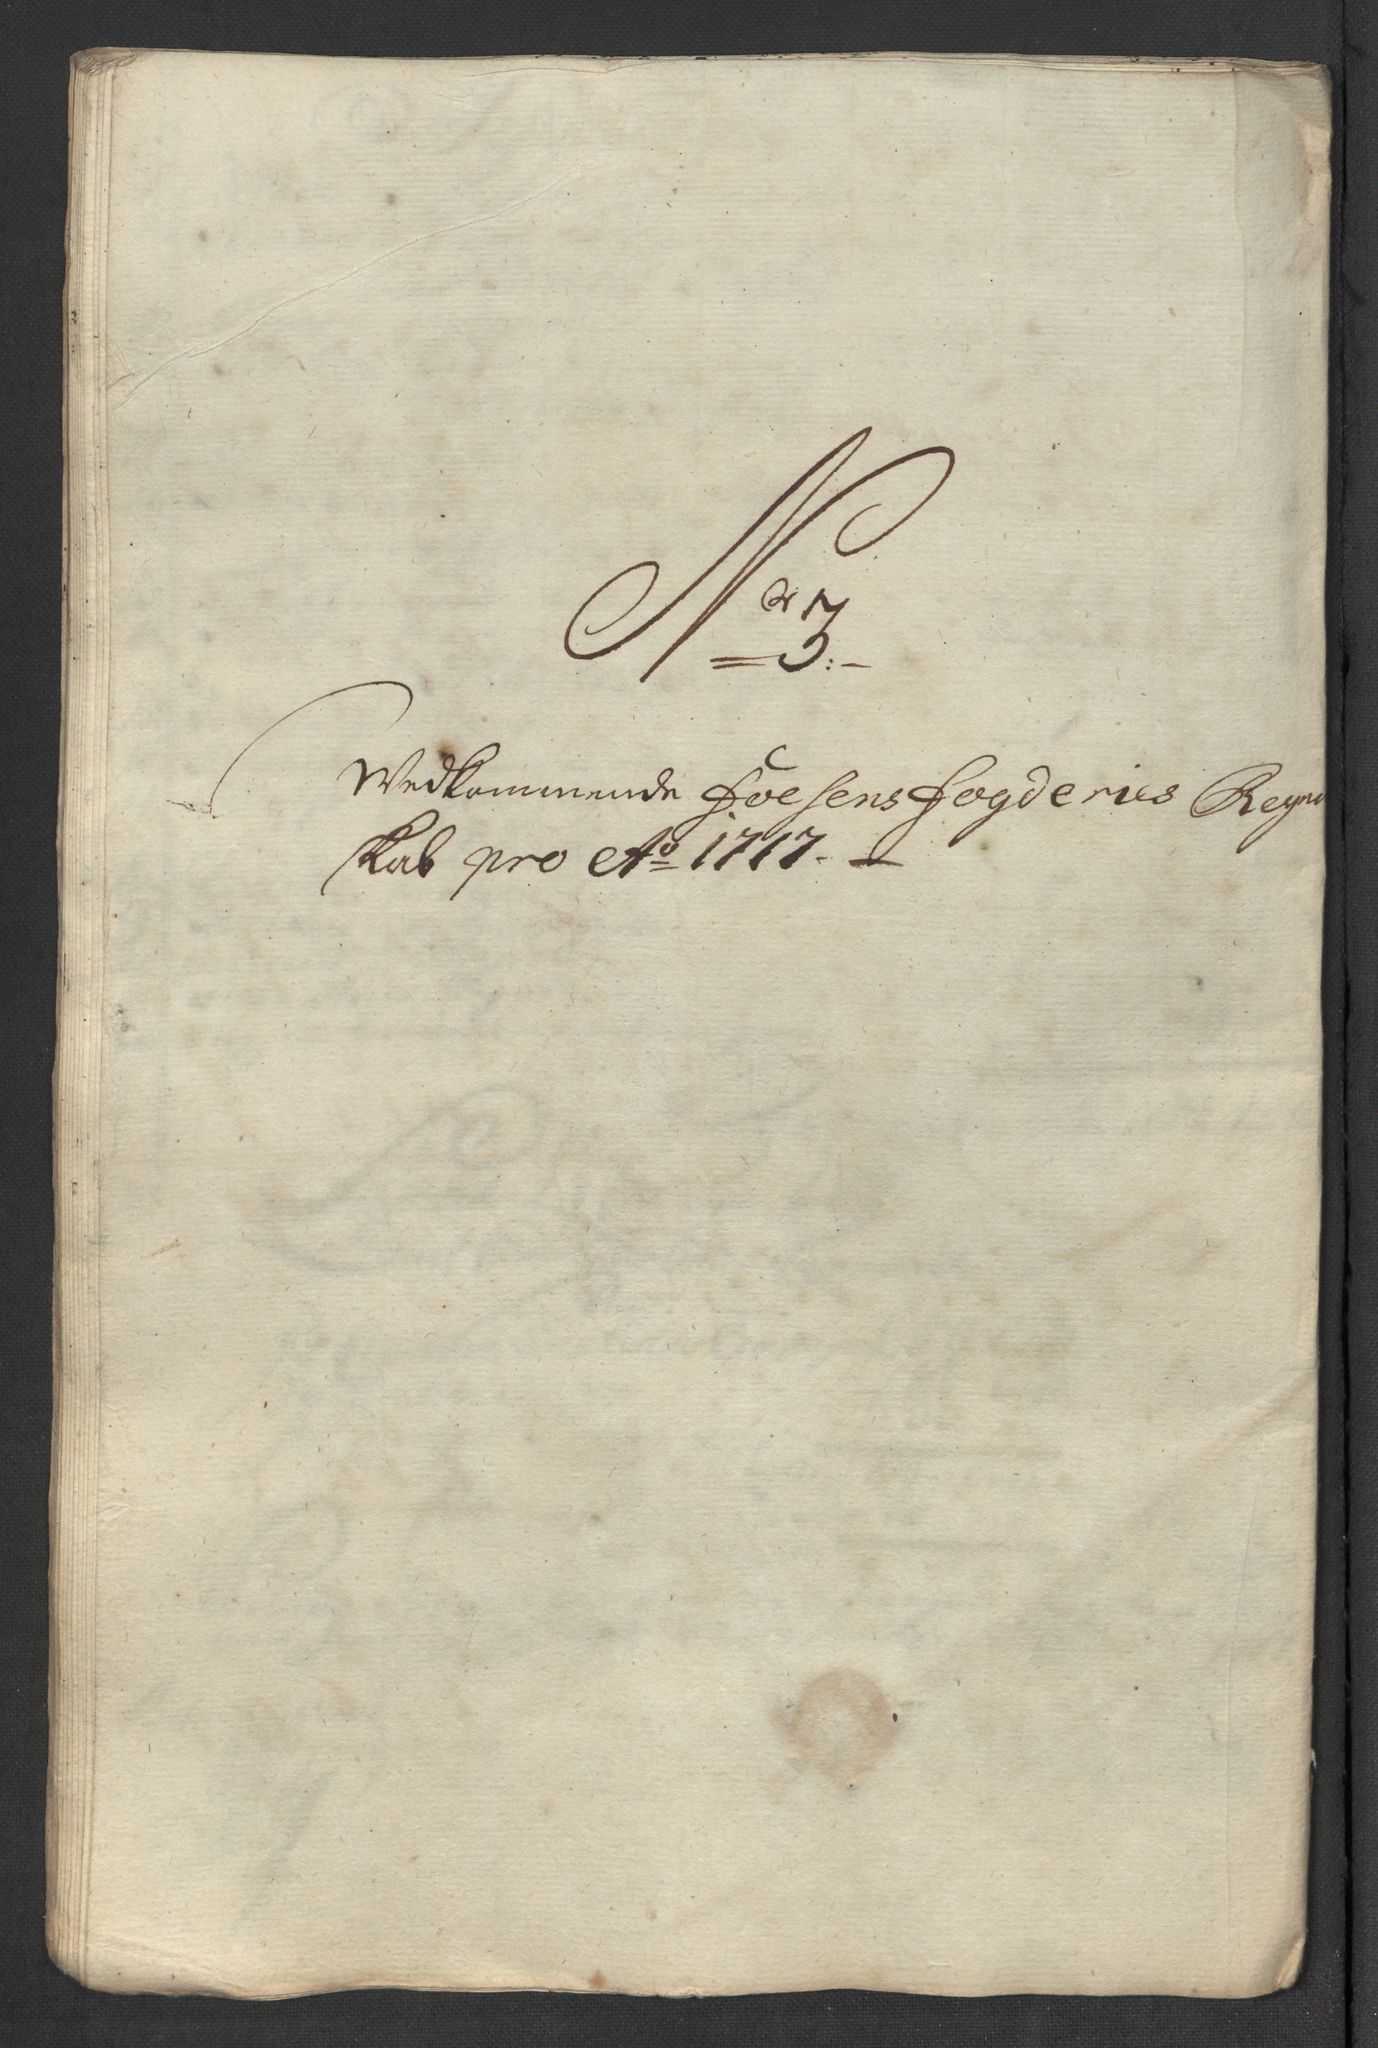 No 3:
Wedkommende Foesens Fogderies Regn
skab pro Ao 1717.